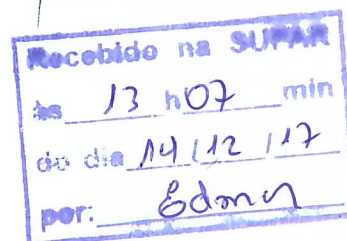 Recebido na SUPAR
às 13 h 07 min
do dia 14 / 12 / 17
por: